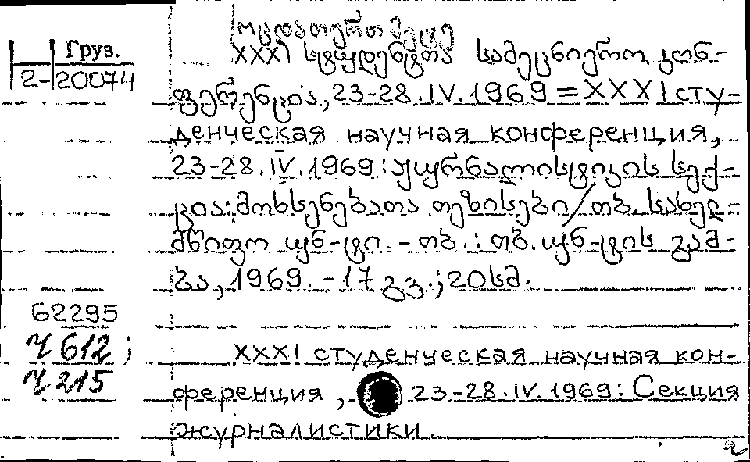 ოცდათერთმეტე
Груз.
2-20074
XXXI სტუდენტთა სამეცნიერო კონ-
ფერენცია, 23-28.IV.1969 = XXXI сту-
денческая научная конференция,
23-28.IV.1969: ჟურნალისტიკის სექ-
ცია: მოხსენებათა თეზისები / თბ. სახელ-
მწიფო უნ-ტი. - თბ.: თბ. უნ-ტის გამ-
ბა, 1969. - 17 გვ.; 20 სმ.
62295
Ч 612;
Ч 215
XXXI студенческая научная кон-
ференция, 23-28.IV.1969: Секция
журналистики.